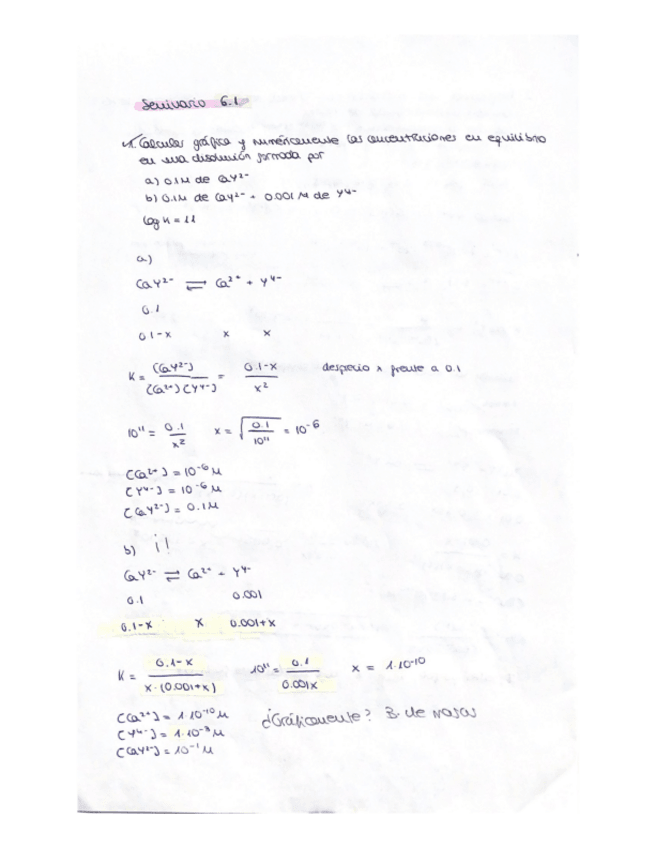 Seminario 6.1
1. Calcular gráfica y numéricamente las concentraciones en equilibrio
en una disolución formada por
a) 0.1M de CaY²⁻
b) 0.1M de CaY²⁻ + 0.001 M de Y⁴⁻
log K = 11
a)
CaY²⁻ ⇌ Ca²⁺ + Y⁴⁻
0.1
0.1-x x x
K = [CaY²⁻] / [Ca²⁺][Y⁴⁻] = 0.1-x / x² desprecio x frente a 0.1
10¹¹ = 0.1 / x² x = √(0.1 / 10¹¹) = 10⁻⁶
[Ca²⁺] = 10⁻⁶ M
[Y⁴⁻] = 10⁻⁶ M
[CaY²⁻] = 0.1M
b) ¡!
CaY²⁻ ⇌ Ca²⁺ + Y⁴⁻
0.1 0.001
0.1-x x 0.001+x
K = 0.1-x / x·(0.001+x) 10¹¹ = 0.1 / 0.001x x = 1·10⁻¹⁰
[Ca²⁺] = 1·10⁻¹⁰ M ¿Gráficamente? B. de masas
[Y⁴⁻] = 1·10⁻³ M
[CaY²⁻] = 10⁻¹ M